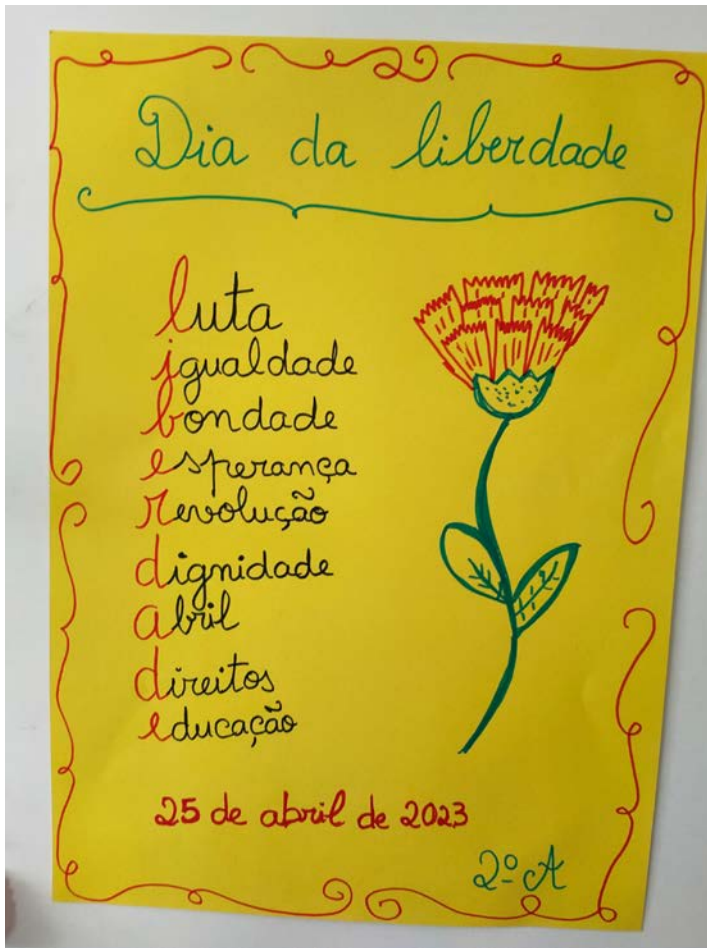 Dia da liberdade
luta
igualdade
bondade
esperança
revolução
dignidade
abril
direitos
educação
25 de abril de 2023
2º A